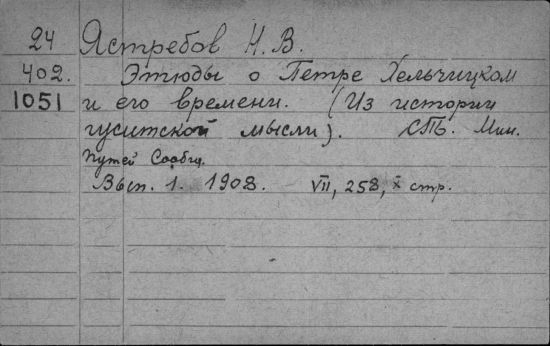 24 Ястребов Н. В.
402. Этюды о Петре Хельчицком
1051 и его времени. (Из истории
гуситской мысли). СПБ. Мин.
Путей Сообщ.
Вып. 1. 1908. VII, 258, X стр.